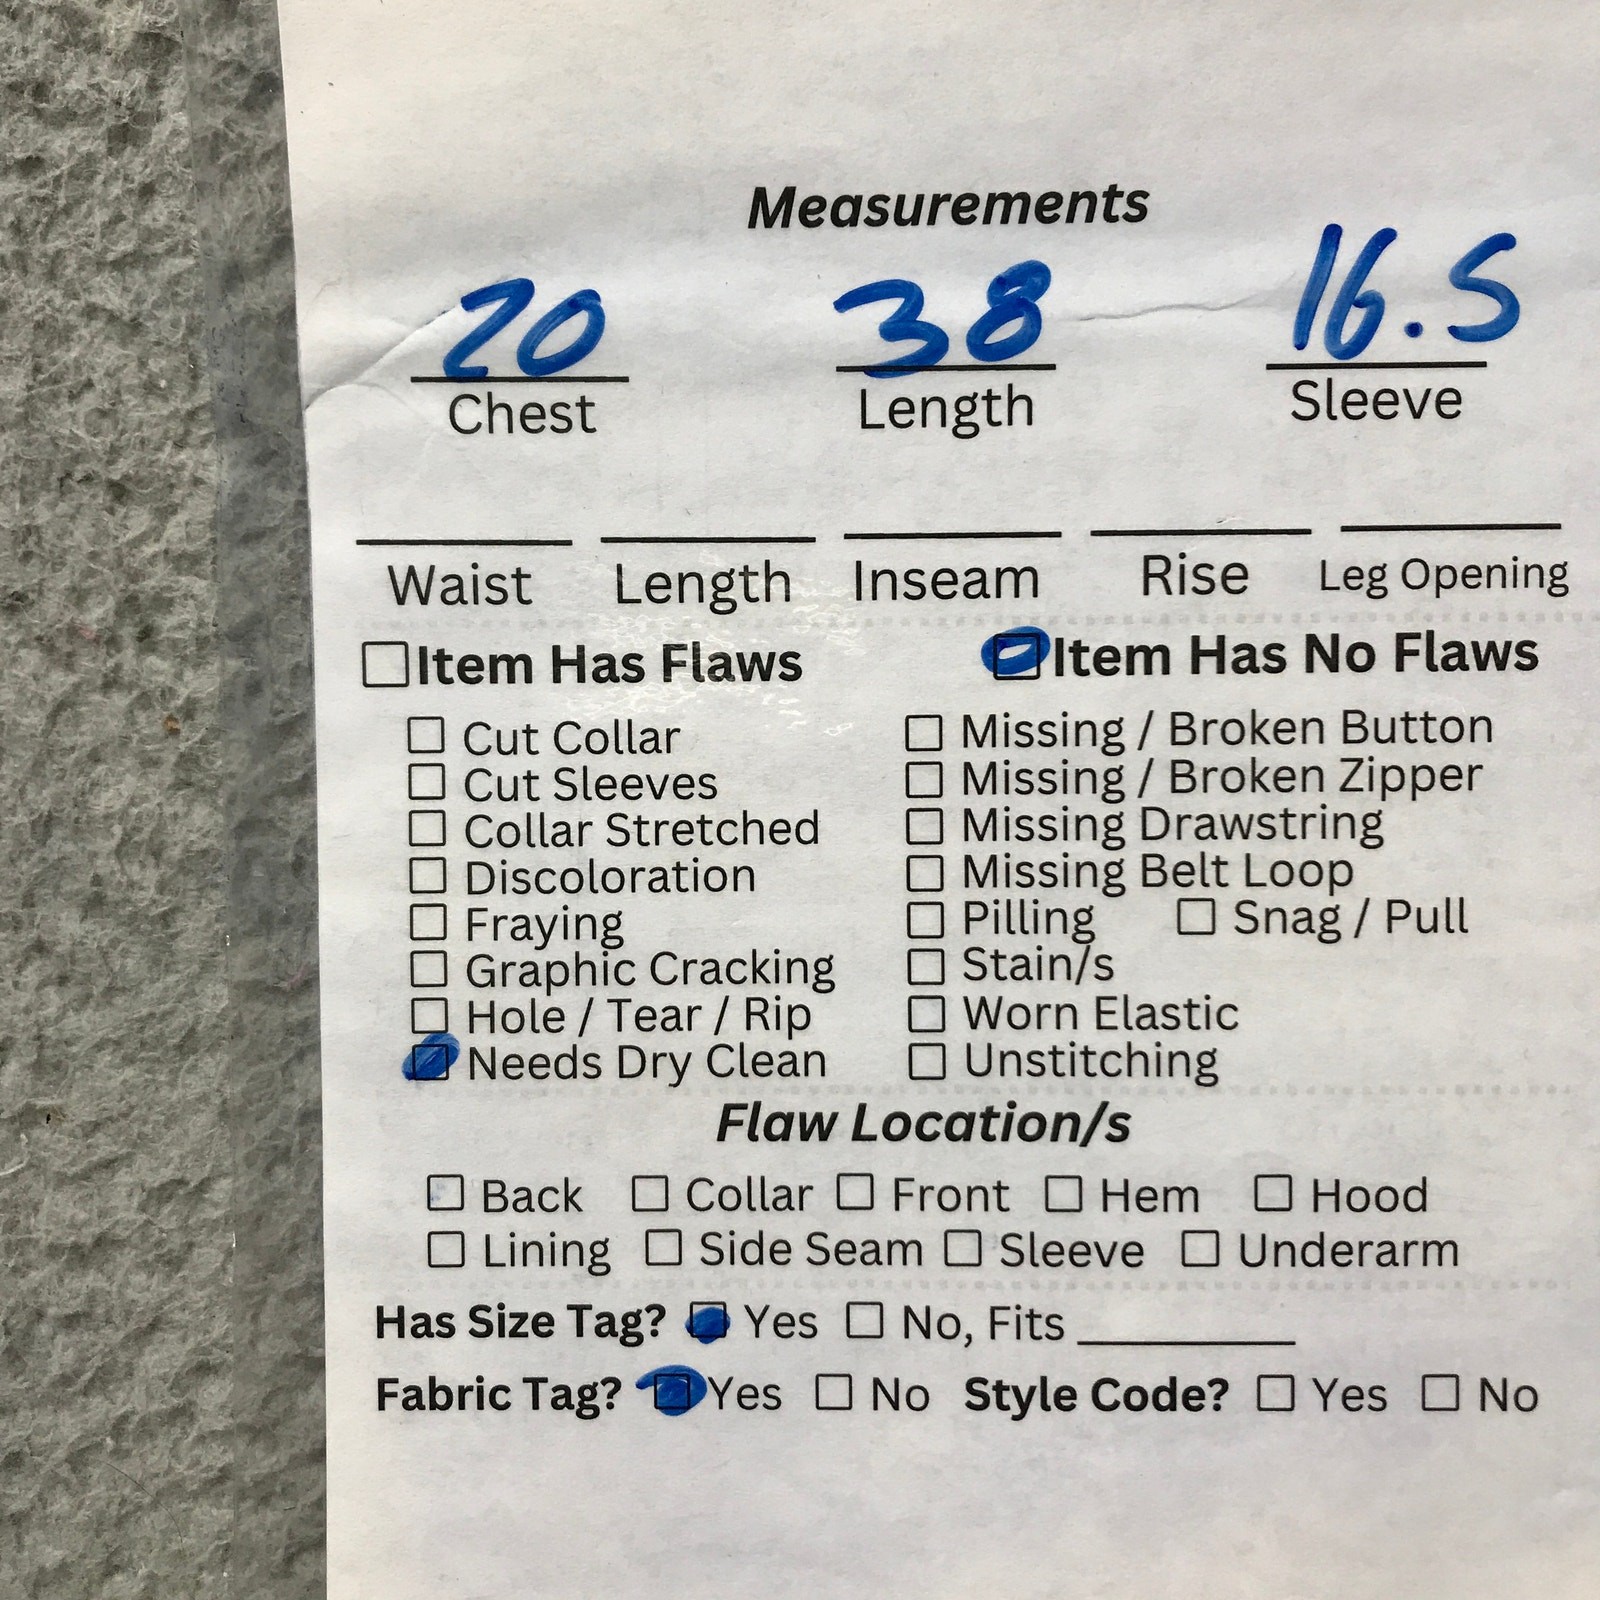 Measurements
20 38 16.5
Chest Length Sleeve
Waist Length Inseam Rise Leg Opening
Item Has Flaws Item Has No Flaws
Cut Collar Missing / Broken Button
Cut Sleeves Missing / Broken Zipper
Collar Stretched Missing Drawstring
Discoloration Missing Belt Loop
Fraying Pilling Snag / Pull
Graphic Cracking Stain/s
Hole / Tear / Rip Worn Elastic
Needs Dry Clean Unstitching
Flaw Location/s
Back Collar Front Hem Hood
Lining Side Seam Sleeve Underarm
Has Size Tag? Yes No, Fits
Fabric Tag? Yes No Style Code? Yes No